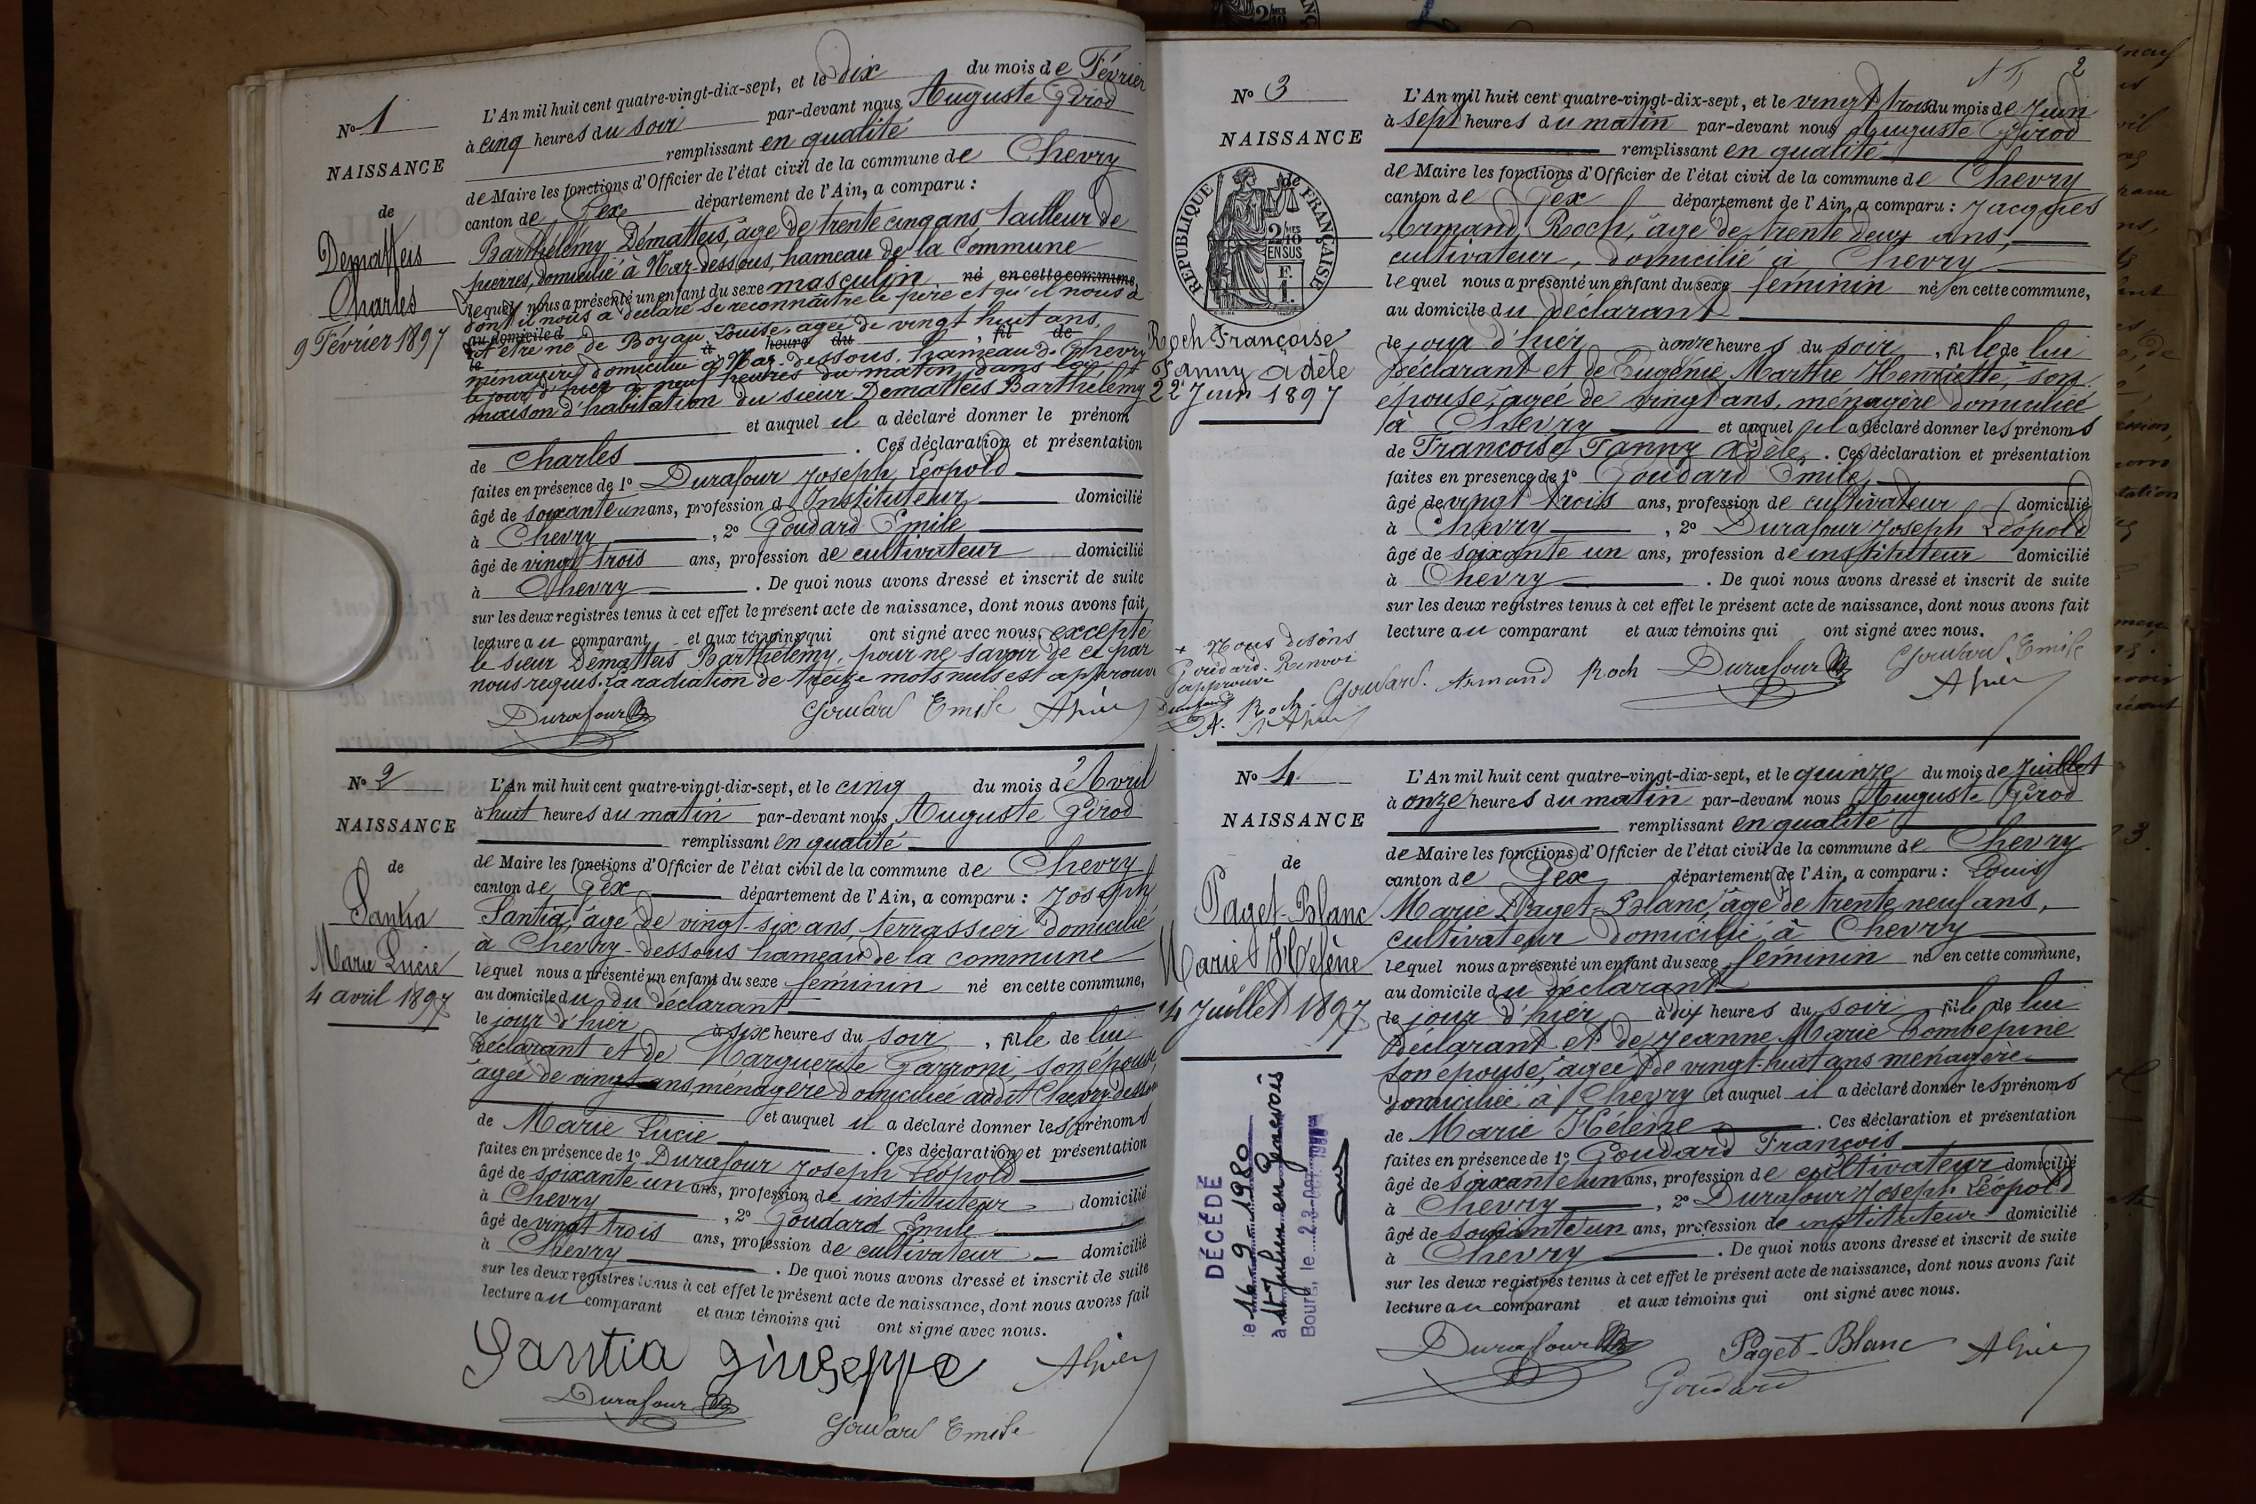 N° 1
NAISSANCE
de
Dematteis
Charles
9 Février 1897
L'An mil huit cent quatre-vingt-dix-sept, et le dix du mois de Février
à cinq heures du soir par-devant nous Auguste Girod
remplissant en qualité
de Maire les fonctions d'Officier de l'état civil de la commune de Chevry
canton de Gex département de l'Ain, a comparu :
Barthélémy Dématteis, âgé de trente cinq ans, tailleur de
pierres, domicilié à Naz-dessous, hameau de la Commune
lequel nous a présenté un enfant du sexe masculin né en cette commune,
dont il nous a déclaré se reconnaître le père et qu'il nous a
au domicile d
dit être né de Boyau Louise, agée de vingt huit ans,
le à heure du , fil de
ménagère domicilié à Naz-dessous, hameau de Chevry
le jour d'hier à neuf heures du matin, dans la
maison d'habitation du sieur Dematteis Barthélémy
et auquel il a déclaré donner le prénom
de Charles . Ces déclaration et présentation
faites en présence de 1° Durafour Joseph Léopold
âgé de soixante un ans, profession d'Instituteur domicilié
à Chevry , 2° Goudard Emile
âgé de vingt trois ans, profession de cultivateur domicilié
à Chevry . De quoi nous avons dressé et inscrit de suite
sur les deux registres tenus à cet effet le présent acte de naissance, dont nous avons fait
lecture au comparant et aux témoins qui ont signé avec nous, excepté
le sieur Dématteis Barthélémy, pour ne savoir de ce par
nous requis. La radiation de treize mots nuls est approuvé
Durafour Goudard Emile AGirod
N° 2
NAISSANCE
de
Santia
Marie Lucie
4 avril 1897
L'An mil huit cent quatre-vingt-dix-sept, et le cinq du mois d'Avril
à huit heures du matin par-devant nous Auguste Girod
remplissant en qualité
de Maire les fonctions d'Officier de l'état civil de la commune de Chevry
canton de Gex département de l'Ain, a comparu : Joseph
Santia, âgé de vingt-six ans, terrassier domicilié
à Chevry-dessous hameau de la commune
lequel nous a présenté un enfant du sexe féminin né en cette commune,
au domicile du du déclarant
le jour d'hier à six heures du soir , fille de lui
déclarant et de Marguerite , son épouse,
agée de vingt ans, ménagère domiciliée audit Chevry-dessous
et auquel il a déclaré donner les prénoms
de Marie Lucie . Ces déclaration et présentation
faites en présence de 1° Durafour Joseph Léopold
âgé de soixante un ans, profession de instituteur domicilié
à Chevry , 2° Goudard Emile
âgé de vingt trois ans, profession de cultivateur domicilié
à Chevry . De quoi nous avons dressé et inscrit de suite
sur les deux registres tenus à cet effet le présent acte de naissance, dont nous avons fait
lecture au comparant et aux témoins qui ont signé avec nous.
Santia Giuseppe AGirod
Durafour
Goudard Emile
2
N° 3
NAISSANCE
de
RÉPUBLIQUE FRANÇAISE
2/10 MES
EN SUS
F.
1.
Roch Françoise
Fanny Adèle
22 Juin 1897
L'An mil huit cent quatre-vingt-dix-sept, et le vingt trois du mois de Juin
à sept heures du matin par-devant nous Auguste Girod
remplissant en qualité
de Maire les fonctions d'Officier de l'état civil de la commune de Chevry
canton de Gex département de l'Ain, a comparu : Jacques
Armand Roch, âgé de trente deux ans,
cultivateur, domicilié à Chevry
lequel nous a présenté un enfant du sexe féminin né en cette commune,
au domicile du déclarant
le jour d'hier à onze heures du soir , fille de lui
déclarant et de Eugénie Marthe Henriette, son
épouse, agée de vingt ans, ménagère domiciliée
à Chevry et auquel il a déclaré donner les prénoms
de Françoise Fanny Adèle . Ces déclaration et présentation
faites en presence de 1° Goudard Emile
âgé de vingt trois ans, profession de cultivateur domicilié
à Chevry , 2° Durafour Joseph Léopold
âgé de soixante un ans, profession de instituteur domicilié
à Chevry . De quoi nous avons dressé et inscrit de suite
sur les deux registres tenus à cet effet le présent acte de naissance, dont nous avons fait
lecture au comparant et aux témoins qui ont signé avec nous.
+ Nous disons
Goudard. Renvoi
approuvé
Durafour Goudard.
A. Roch. AGirod
Armand Roch Durafour Goudard Emile
AGirod
N° 4
NAISSANCE
de
Paget-Blanc
Marie Hélène
14 Juillet 1897
DÉCÉDÉ
le 14.9.1980
à St Julien en Genevois
Bourg, le
L'An mil huit cent quatre-vingt-dix-sept, et le quinze du mois de Juillet
à onze heures du matin par-devant nous Auguste Girod
remplissant en qualité
de Maire les fonctions d'Officier de l'état civil de la commune de Chevry
canton de Gex département de l'Ain, a comparu : Louis
Marie Paget-Blanc, âgé de trente neuf ans,
cultivateur domicilié à Chevry
lequel nous a présenté un enfant du sexe féminin né en cette commune,
au domicile du déclarant
le jour d'hier à dix heures du soir fille de lui
déclarant et de Jeanne Marie Combepine
son épouse, agée de vingt-huit ans ménagère
domiciliée à Chevry et auquel il a déclaré donner les prénoms
de Marie Hélène . Ces déclaration et présentation
faites en présence de 1° Goudard François
âgé de soixante un ans, profession de cultivateur domicilié
à Chevry , 2° Durafour Joseph Léopold
âgé de soixante un ans, profession de instituteur domicilié
à Chevry . De quoi nous avons dressé et inscrit de suite
sur les deux registres tenus à cet effet le présent acte de naissance, dont nous avons fait
lecture au comparant et aux témoins qui ont signé avec nous.
Durafour Paget-Blanc AGirod
Goudard